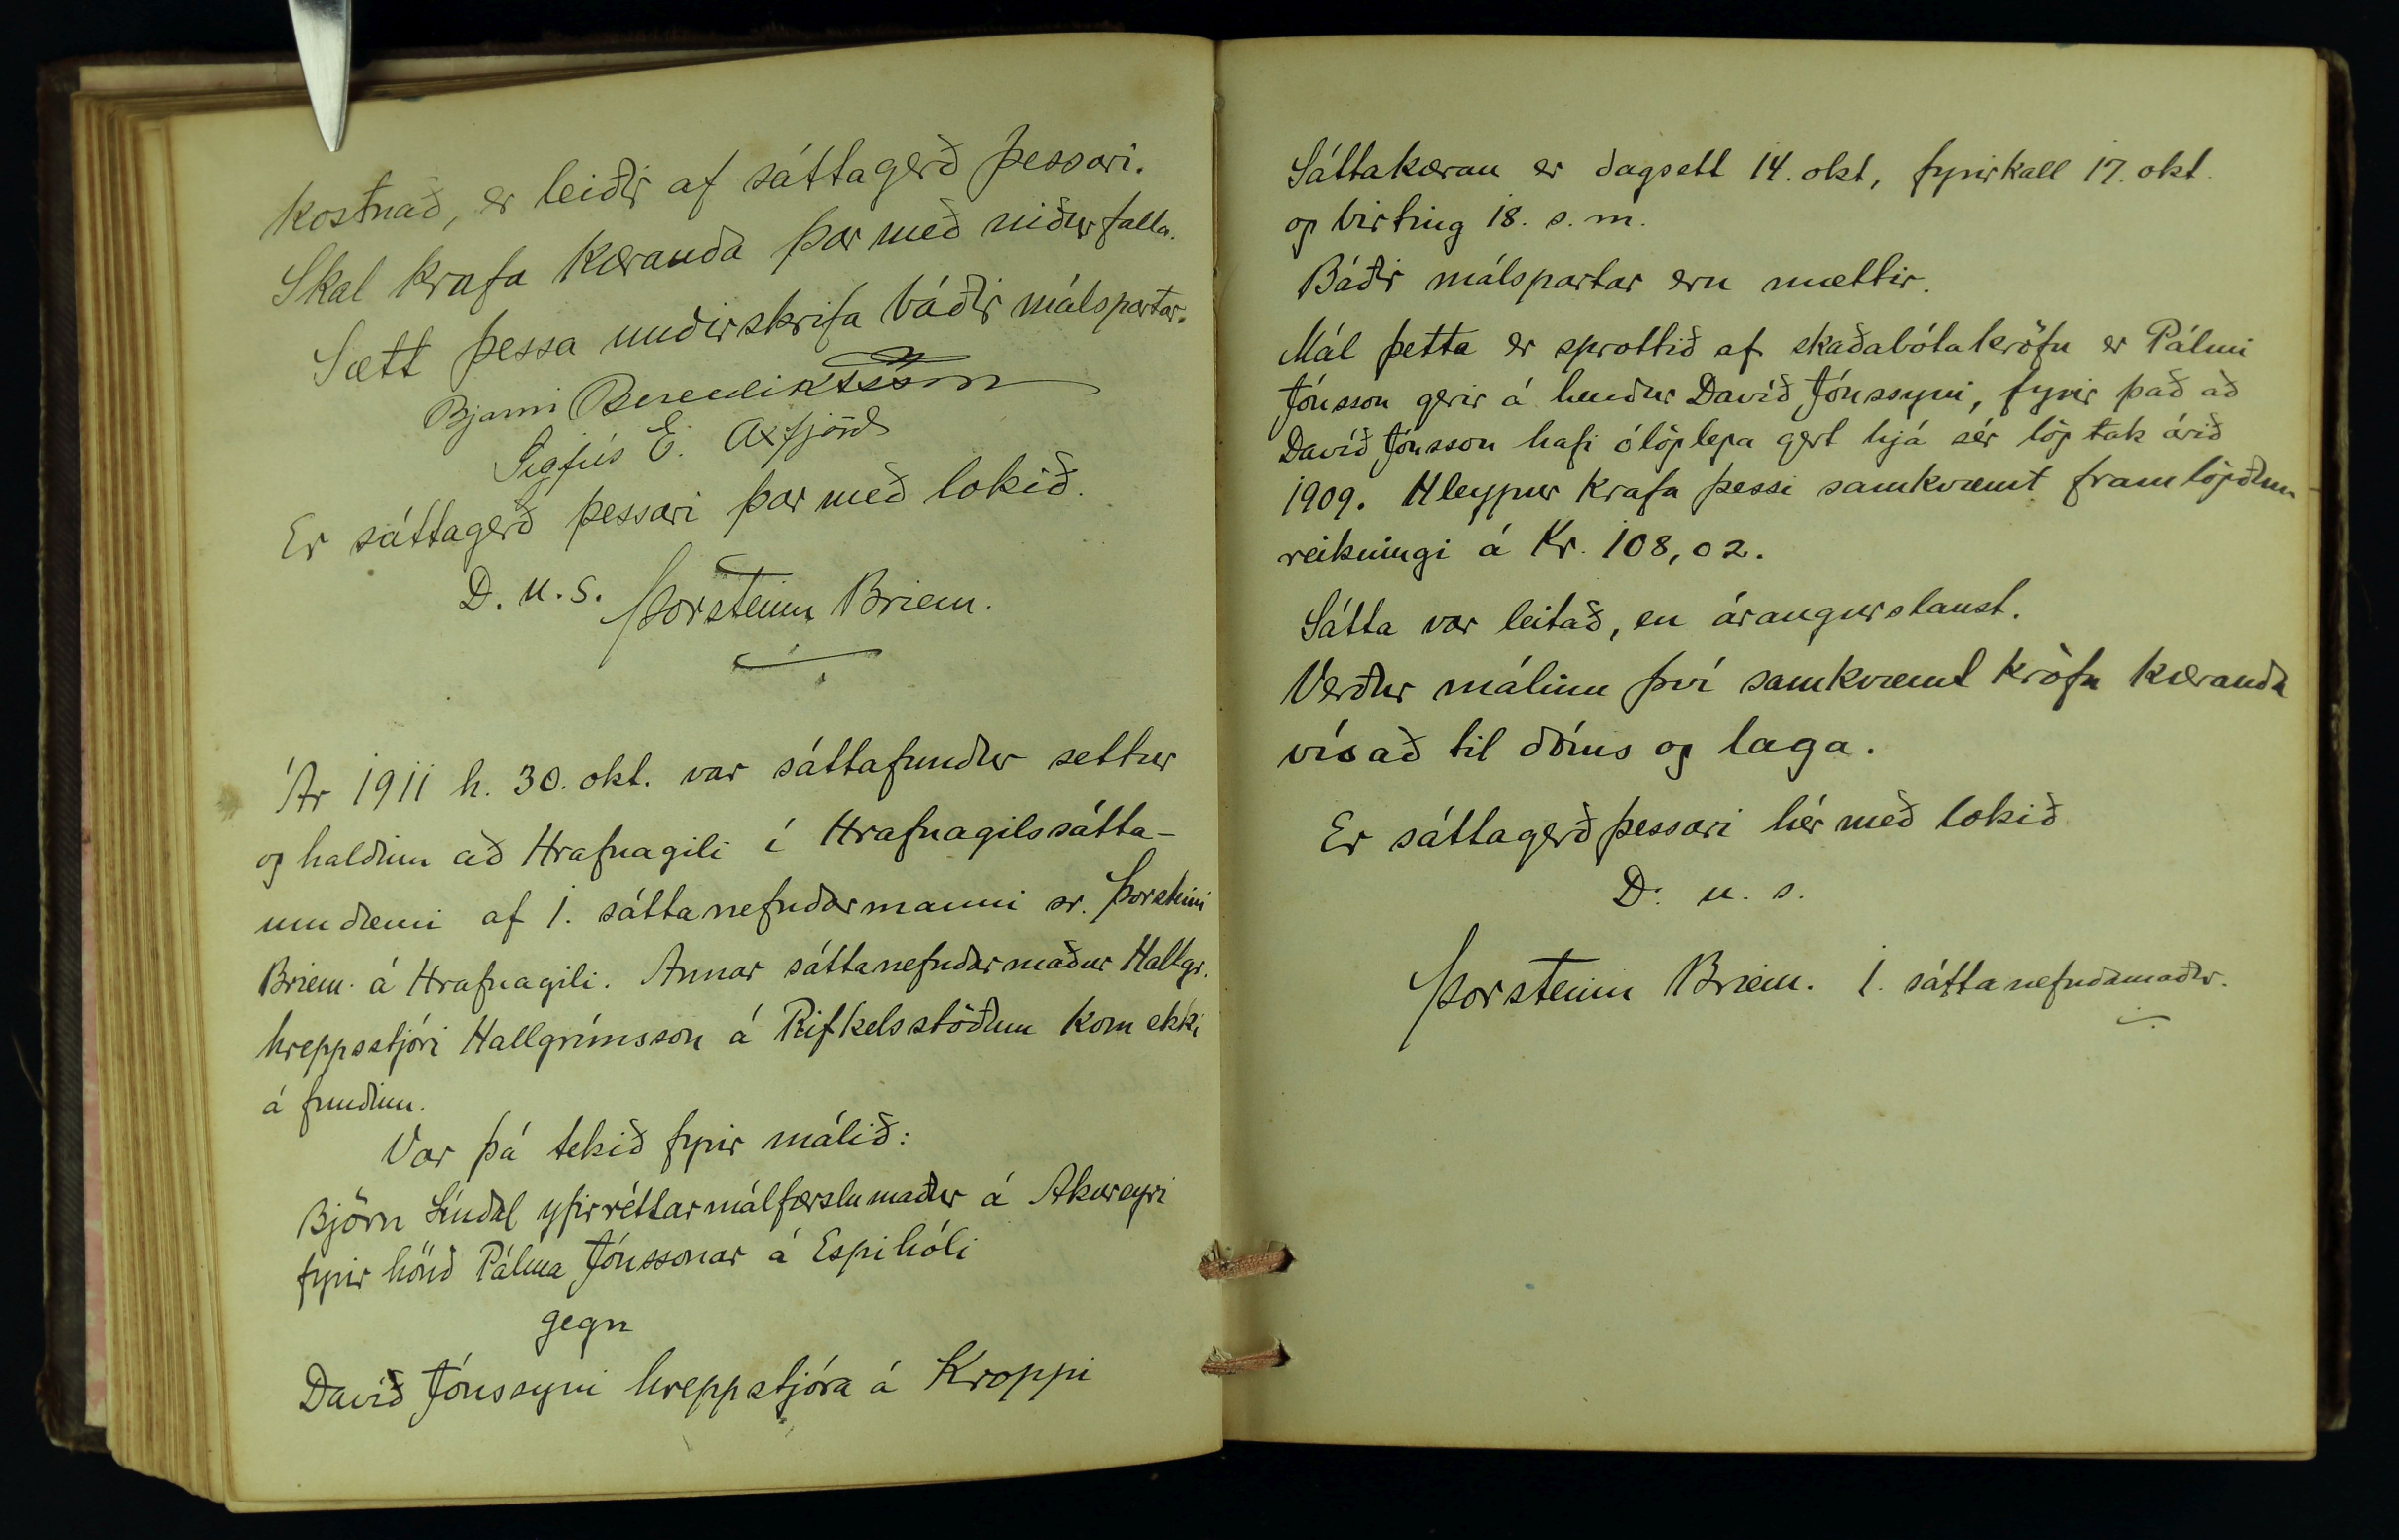 kostnað, er leiðir af sáttagerð þessari.
Skal krafa kæranda þar með niðurfalla.
Sætt þessa undirskrifa báðir málspartar.
Bjarni Benediktsson
Sigfús E. Axfjörð
Er sáttagerð þessari þar með lokið.
D. u. s. Þorsteinn Briem.
Ár 1911 h. 30. okt. var sáttafundur settur
og haldinn að Hrafnagili í Hrafnagilssátta-
umdæmi af 1. sáttanefndarmanni sr. Þorsteini
Briem á Hrafnagili. Annar sáttanefndarmaður Hallgr.
hreppsstjóri Hallgrímsson á Rifkelsstöðum kom ekki
á fundinn.
Var þá tekið fyrir málið:
Björn Líndal yfirréttarmálfærslumaður á Akureyri
fyrir hönd Pálma Jónssonar á Espihóli
gegn
Davíð Jónssyni hreppstjóra á Kroppi
Sáttakæran er dagsett 14. okt, fyrirkall 17. okt.
og birting 18. s. m.
Báðir málspartar eru mættir.
Mál þetta er sprottið af skaðabótakröfu er Pálmi
Jónsson gerir á hendur Davíð Jónssyni, fyrir það að
Davíð Jónsson hafi ólöglega gert hjá sér lögtak árið
1909. Hleypur krafa þessi samkvæmt framlögðum
reikningi á Kr. 108,02.
Sátta var leitað, en árangurslaust.
Verður málinu því samkvæmt kröfu kæranda
vísað til dóms og laga.
Er sáttagerð þessari hér með lokið
D. u. s.
Þorsteinn Briem. 1. sáttanefndamaður.